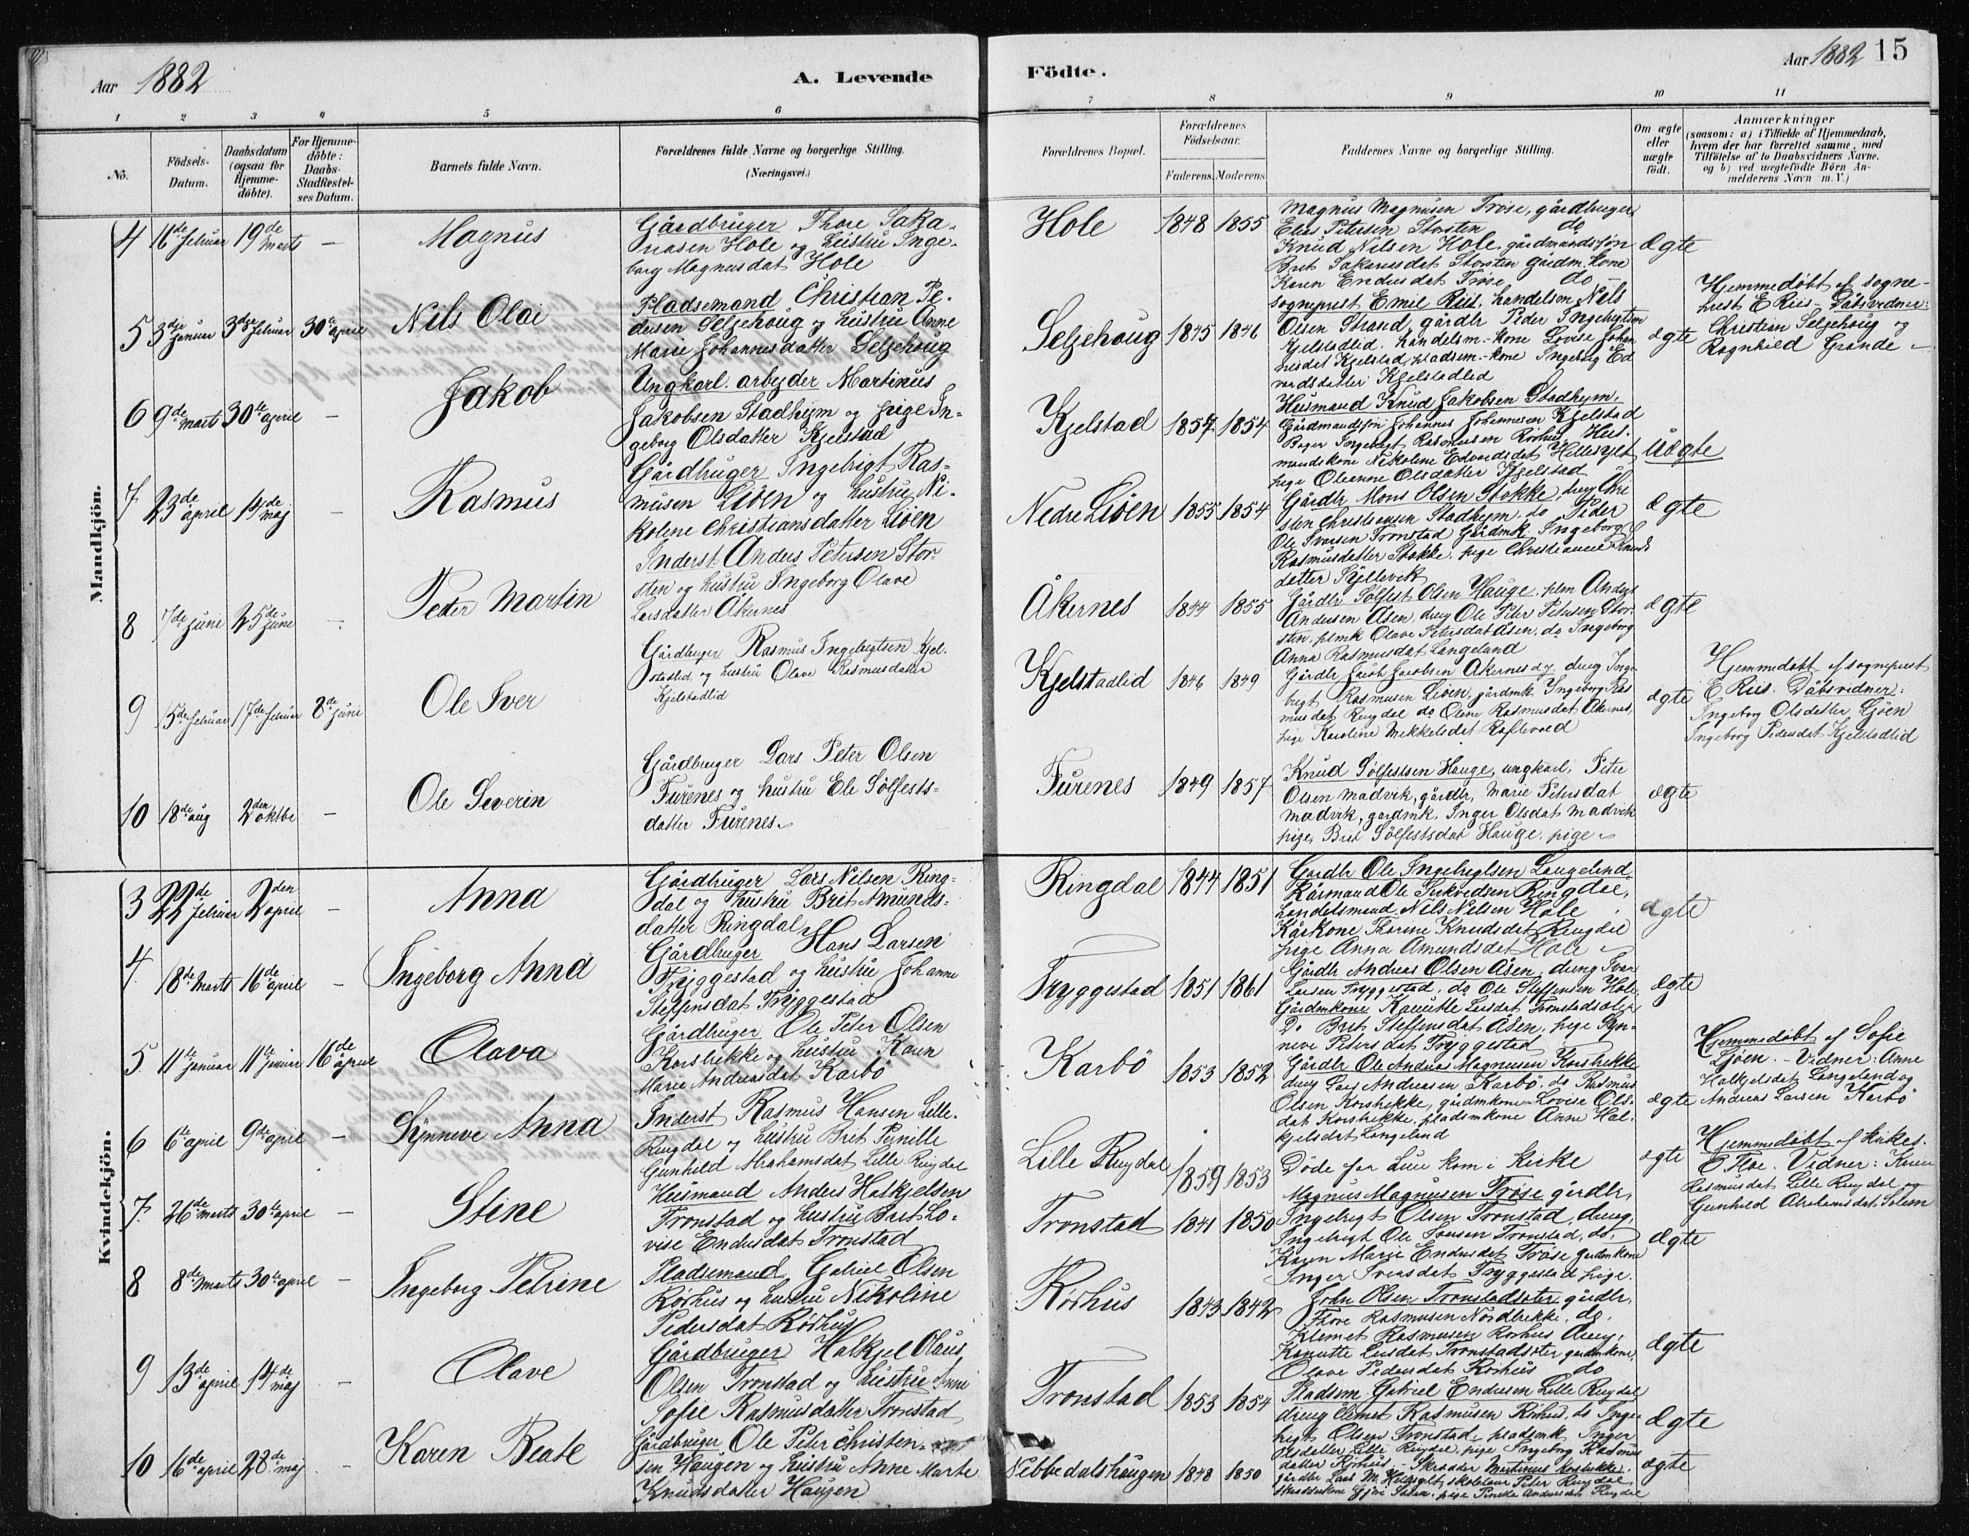 Aar 1882
A. Levende
Födte.
Aar 1882 15
1 2 3 4 5 6 7 8 9 10 11
No.
Födsels-Datum.
Daabsdatum (ogsaa for Hjemmedöbte).
For Hjemmedöbte: Daabs-Stadfæstelses Datum.
Barnets fulde Navn.
Forældrenes fulde Navne og borgerlige Stilling. (Næringsvei.)
Forældrenes Bopæl.
Forældrenes Födselsaar.
Faderens. Moderens.
Faddernes Navne og borgerlige Stilling.
Om ægte eller uægte födt.
Anmærkninger
(saasom: a) i Tilfælde af Hjemmedaab, hvem der har forrettet samme, med Tilföielse af to Daabsvidners Navne, og b) ved uægtefödte Börn Anmelderens Navn m. V.)
Mandkjön.
4 16de februar 19de marts – Magnus
Gårdbruger Thore Saka-
riasen Hole og hustru Inge-
borg Magnusdat Hole
Hole 1848 1855
Magnus Magnusen Trøse, gårdbruger
Elias Petersen Storsten do
Knud Nilsen Hole, gårdmandssøn
Bret Sakariasdat Storsten gårdm.kone
Karen Endresdat Trøse do
ægte
5 3die januar 3die februar 30te april Nils Olai
Pladsemand Christian Pe-
dersen Seljehoug og hustru Anne
Marie Johannesdatter Seljehoug
Seljehoug 1845 1846
Sogneprest Emil Riis, handelsm Nils
Olsen Strand, gårdbr Peder Ingebrigtsen
Kjelstadlid, handelsm.-kone Lovise Johan
nesdat Kjelstad, pladsem.-kone Ingeborg Ed
vardsdatter Kjelstadlid
ægte
Hjemmedøbt af sogne-
prest E Riis – Dåbsvidner:
Christian Seljehoug og
Ragnhild Grande –
6 9de marts 30te april – Jakob
Ungkarl. arbejder Martinus
Jakobsen Stadhejm og pige In-
geborg Olsdatter Kjelstad
Kjelstad 1857 1854
Husmand Knud Jakobsen Stadhejm,
Gårdmandssøn Johannes Johannesen Kjelstad
Ingebrigt Rasmusen Rørhus, Hus-
mandskone Nikoline Edvardsdat Hellesylt
pige Oleanne Olsdatter Kjelstad
uægte
7 23de april 14de maj – Rasmus
Gårdbruger Ingebrigt Ras-
musen Liøen og hustru Ni-
koline Christiansdatter Liøen
Nedre Liøen 1855 1854
Gårdbr Mons Olsen Stokke, dreng Chri
sten Christiansen Stadhejm, do Peder
Ole Iversen Tronstad Gårdmk. Ingeborg
Rasmusdatter Stokke, pige Christianne
datter Kjellevik
ægte
8 7de juni 25de juni – Peder Martin
Inderst Anders Petersen Stor-
sten og hustru Ingeborg Olave
Larsdatter Åkernes
Åkernes 1844 1855
Gårdbr Sølfest Olsen Hauge, plm Andreas
Andersen Åsen, dreng Ole Peter Petersen Stor-
sten, plmk Olave Petersdat Åsen, do Ingeborg
Anna Rasmusdat Langeland
ægte
9 5de februar 17de februar 8de juni Ole Iver
Gårdbruger Rasmus Ingebrigtsen Kjel-
stadlid og hustru Olave Rasmusdatter
Kjelstadlid
Kjelstadlid 1846 1849
Gårdbr Jacob Jacobsen Åkernes, dreng Inge
brigt Rasmusen Liøen, gårdmk. Ingeborg Ras
musdat Ringdal do Oline Rasmusdat Åkernes,
pige Karoline Mikkelsdat Raftevold
ægte
Hjemmedøbt af sogneprest
E Riis. Dåbsvidner:
Ingeborg Olsdatter Ljøen
Ingeborg Pedersdat Kjelstadlid
10 18de aug 2den oktbr – Ole Severin
Gårdbruger Lars Peter Olsen
Furenes og hustru Ele Sølfests-
datter Furenes.
Furenes 1849 1857
Knud Sølfestsen Hauge, ungkarl, Peter
Olsen Madvik, gårdbr, Marie Petersdat
Madvik, gårdmk. Inger Olsdat Madvik
pige, Bret Sølfestsdat Hauge, pige
ægte
Kvindekjön.
3 22de februar 2den april – Anna
Gårdbruger Lars Nilsen Ring-
dal og hustru Bret Amunds-
datter Ringdal
Ringdal 1844 1851
Gårdbr Ole Ingebrigtsen Langeland
Kårmand Ole Sivertsen Ringdal,
handelsmand Nils Nilsen Hole
Kårkone Thorine Knudsdat Ringdal
pige Anna Amundsdat Hole
ægte
4 18de marts 16de april – Ingeborg Anna
Gårdbruger Hans Larsen
Tryggestad og hustru Johanne
Steffensdat Tryggestad
Tryggestad 1851 1861
Gårdbr Andreas Olsen Åsen, dreng Iver
Larsen Tryggestad, do Ole Steffensen Hole
Gårdmkone Kanutte Larsdat Tronstadsæter
Do Bret Steffensdat Åsen, pige Syn-
neve Petersdat Tryggestad
ægte
5 11te januar 11te januar 16de april Olava
Gårdbruger Ole Peter Olsen
Korsbrekke og hustru Karen
Marie Andreasdat Karbø
Karbø 1853 1852
Gårdbr Ole Andreas Magnusen Korsbrekke
dreng Lars Andreasen Karbø, do Rasmus
Olsen Korsbrekke, gårdmkone Lovise Ols-
dat Korsbrekke, pladsmkone Anne Hal-
kjelsdat Langeland
ægte
Hjemmedøbt af Sofie
Ljøen. – Vidner: Anne
Halkjelsdat Langeland og
Andreas Larsen Karbø
6 6te april 9de april – Synneve Anna
Inderst Rasmus Hansen Lille-
Ringdal og hustru Bret Pernille
Gunhild Abrahamsdat Lille Ringdal
Lille Ringdal 1859 1853
Døde før den kom i kirke
ægte
Hjemmedøbt af kirkes.
E Floe. Vidner: Karen
Rasmusdat Lille Ringdal og
Gunhild Abrahamsdat Solem
7 26de marts 30te april – Stine
Husmand Anders Halkjelsen
Tronstad og hustru Bret Lo-
vise Endresdat Tronstad
Tronstad 1841 1850
Magnus Magnusen Trøse gårdbr,
Ingebrigt Olsen Tronstad, dreng,
Ingebrigt Ole Jonsen Tronstad, do,
Karen Marie Endresdat Trøse gårdmkone
Inger Iversdat Tryggestad pige.
ægte
8 8de marts 30te april – Ingeborg Petrine
Pladsemand Gabriel Olsen
Rørhus og hustru Nikoline
Pedersdat Rørhus
Rørhus 1843 1842
John Olsen Tronstadsæter gårdbr,
Thore Rasmusen Nordbrekke, do,
Klemet Rasmusen Rørhus dreng,
Kanutte Larsdat Tronstadsæter gårdmkone,
Olave Pedersdat Rørhus do
ægte
9 13de april 14de maj – Olave
Gårdbruger Halkjel Olaus
Olsen Tronstad og hustru Anne
Sofie Rasmusdatter Tronstad
Tronstad 1853 1854
Pladsm. Gabriel Endresen Lille Ringdal
dreng Klemet Rasmusen Rørhus, do Inge-
brigt Olsen Tronstad, pladsmk Inger
Olsdatter Lille Ringdal, pige Ingeborg Rasmus
datter Rørhus
ægte
10 16de april 28de maj – Karen Beate
Gårdbruger Ole Peter Christen-
sen Haugen og hustru Anne Marte
Knudsdatter Haugen
Nibbedalshaugen 1848 1850
Skrædder Martinus Korsbrekke,
gårdbr Lars M. Hellesylt, skolelærer Peter Ringdal
ægte